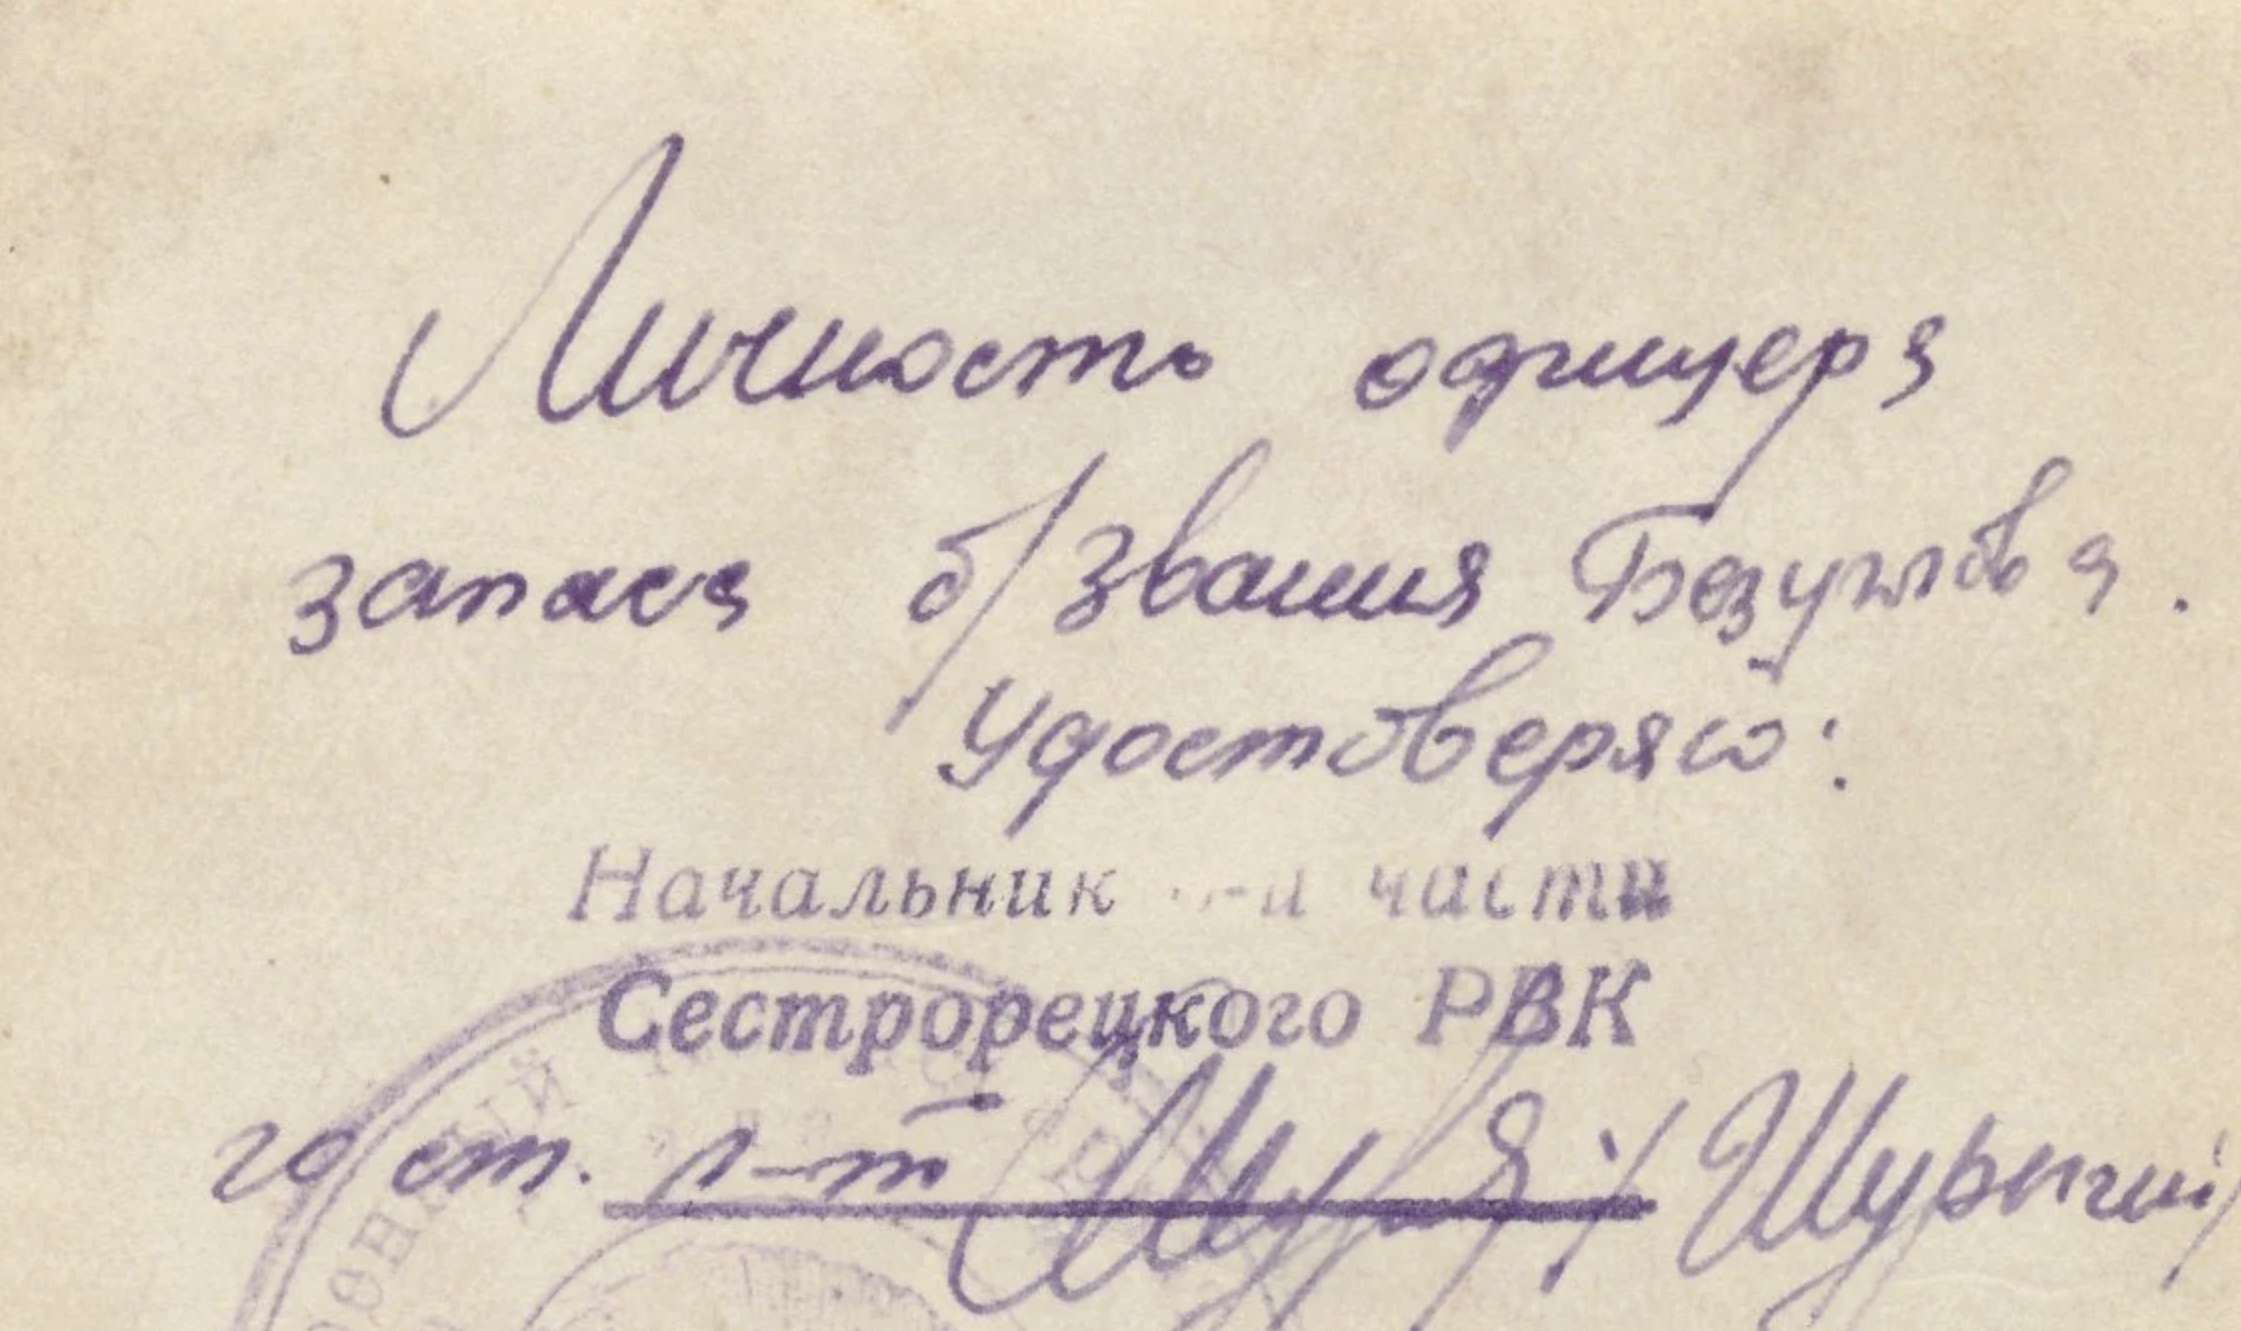 Личность офицера
запаса б/звания Безуглова.
Удостоверяю:
Начальник части
Сестрорецкого РВК
го ст. л-т / Шурыгин/